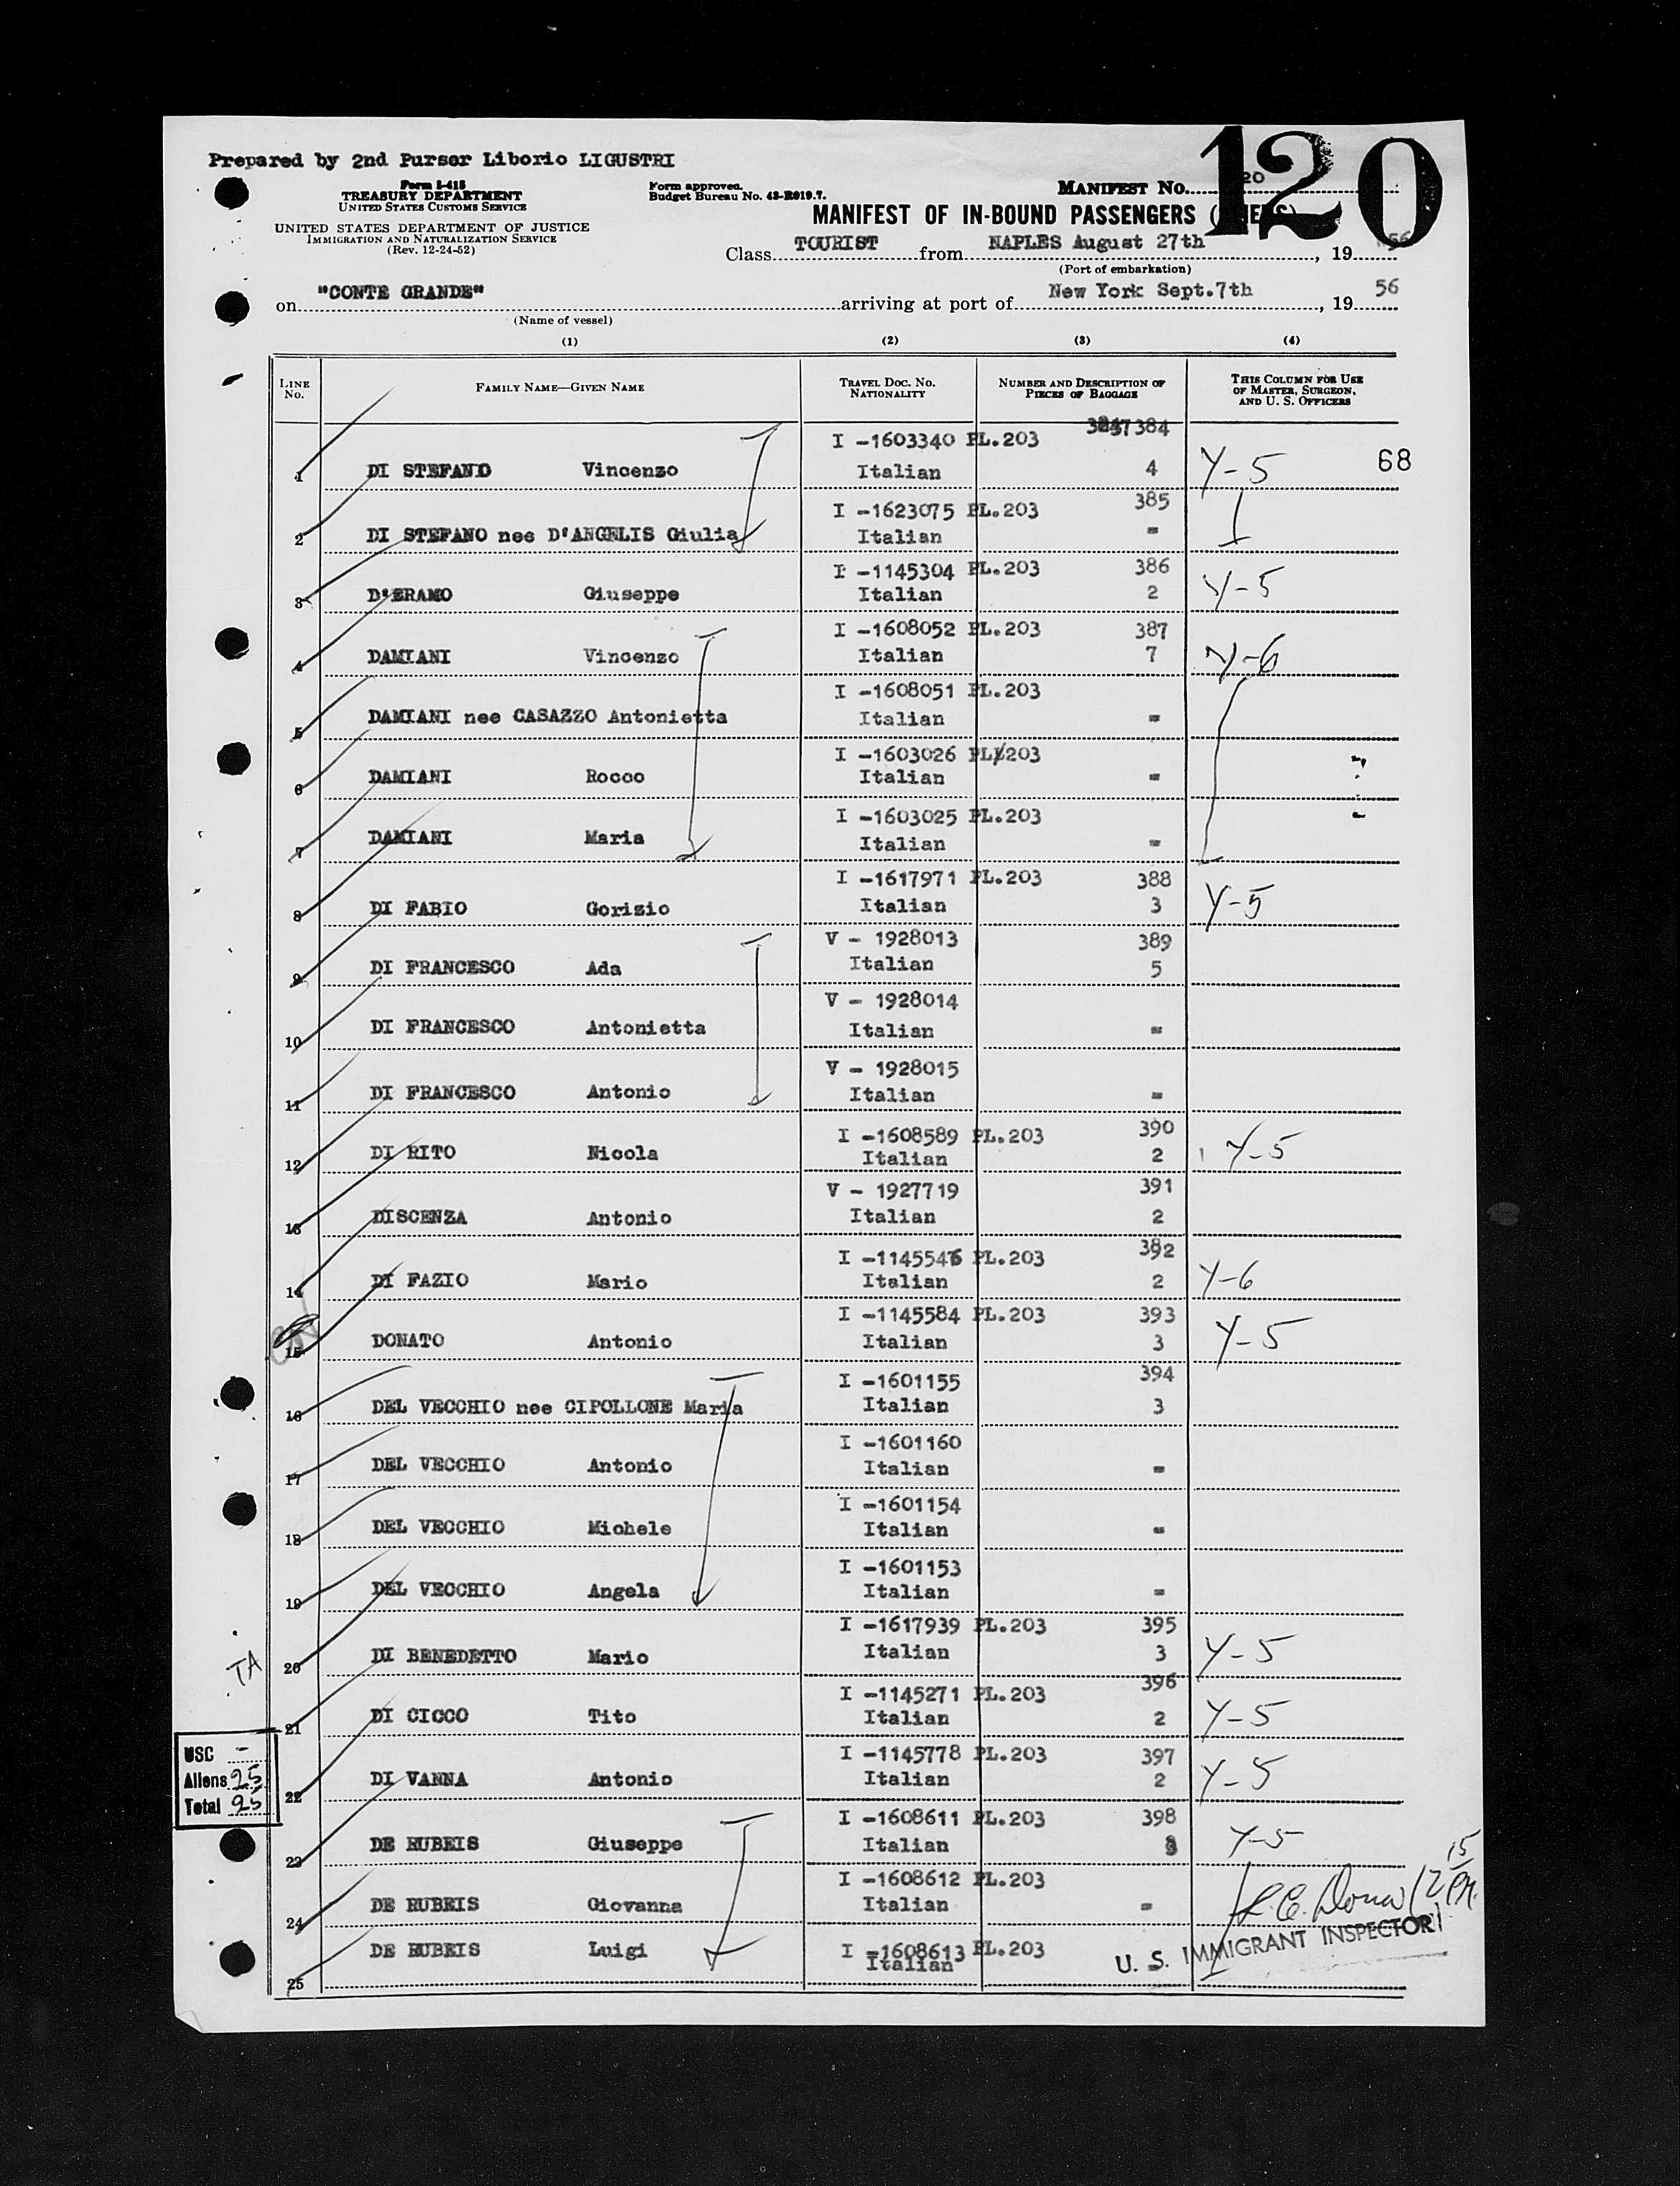 120
Prepared by 2nd Purser Liborio LIGUSTRI
Form I-418
TREASURY DEPARTMENT
UNITED STATES CUSTOMS SERVICE
UNITED STATES DEPARTMENT OF JUSTICE
IMMIGRATION AND NATURALIZATION SERVICE
(Rev. 12-24-52)
Form approved.
Budget Bureau No. 43-R019.7.
MANIFEST No. 20
MANIFEST OF IN-BOUND PASSENGERS
Class TOURIST from NAPLES August 27th, 19 56
(Port of embarkation)
on "CONTE GRANDE" arriving at port of New York Sept.7th, 19 56
(Name of vessel)
(1) (2) (3) (4)
LINE No. FAMILY NAME—GIVEN NAME TRAVEL DOC. No. NATIONALITY NUMBER AND DESCRIPTION OF PIECES OF BAGGAGE THIS COLUMN FOR USE OF MASTER, SURGEON, AND U. S. OFFICERS
I -1603340 PL.203 384
1 DI STEFANO Vincenzo Italian 4 Y-5 68
I -1623075 PL.203 385
2 DI STEFANO nee D'ANGELIS Giulia Italian =
I -1145304 PL.203 386
3 D'ERAMO Giuseppe Italian 2 Y-5
I -1608052 PL.203 387
4 DAMIANI Vincenzo Italian 7 Y-6
I -1608051 PL.203
5 DAMIANI nee CASAZZO Antonietta Italian =
I -1603026 PL.203
6 DAMIANI Rocco Italian =
I -1603025 PL.203
7 DAMIANI Maria Italian =
I -1617971 PL.203 388
8 DI FABIO Gorizio Italian 3 Y-5
V - 1928013 389
9 DI FRANCESCO Ada Italian 5
V - 1928014
10 DI FRANCESCO Antonietta Italian =
V - 1928015
11 DI FRANCESCO Antonio Italian =
I -1608589 PL.203 390
12 DI RITO Nicola Italian 2 Y-5
V - 1927719 391
13 DISCENZA Antonio Italian 2
I -1145546 PL.203 392
14 DI FAZIO Mario Italian 2 Y-6
I -1145584 PL.203 393
15 DONATO Antonio Italian 3 Y-5
I -1601155 394
16 DEL VECCHIO nee CIPOLLONE Maria Italian 3
I -1601160
17 DEL VECCHIO Antonio Italian =
I -1601154
18 DEL VECCHIO Michele Italian =
I -1601153
19 DEL VECCHIO Angela Italian =
I -1617939 PL.203 395
TA 20 DI BENEDETTO Mario Italian 3 Y-5
I -1145271 PL.203 396
21 DI CICCO Tito Italian 2 Y-5
I -1145778 PL.203 397
22 DI VANNA Antonio Italian 2 Y-5
USC -
Aliens 25
Total 25
I -1608611 PL.203 398
23 DE RUBEIS Giuseppe Italian Y-5
I -1608612 PL.203
24 DE RUBEIS Giovanna Italian =
I -1608613 PL.203
25 DE RUBEIS Luigi Italian =
12 15 PM.
U. S. IMMIGRANT INSPECTOR